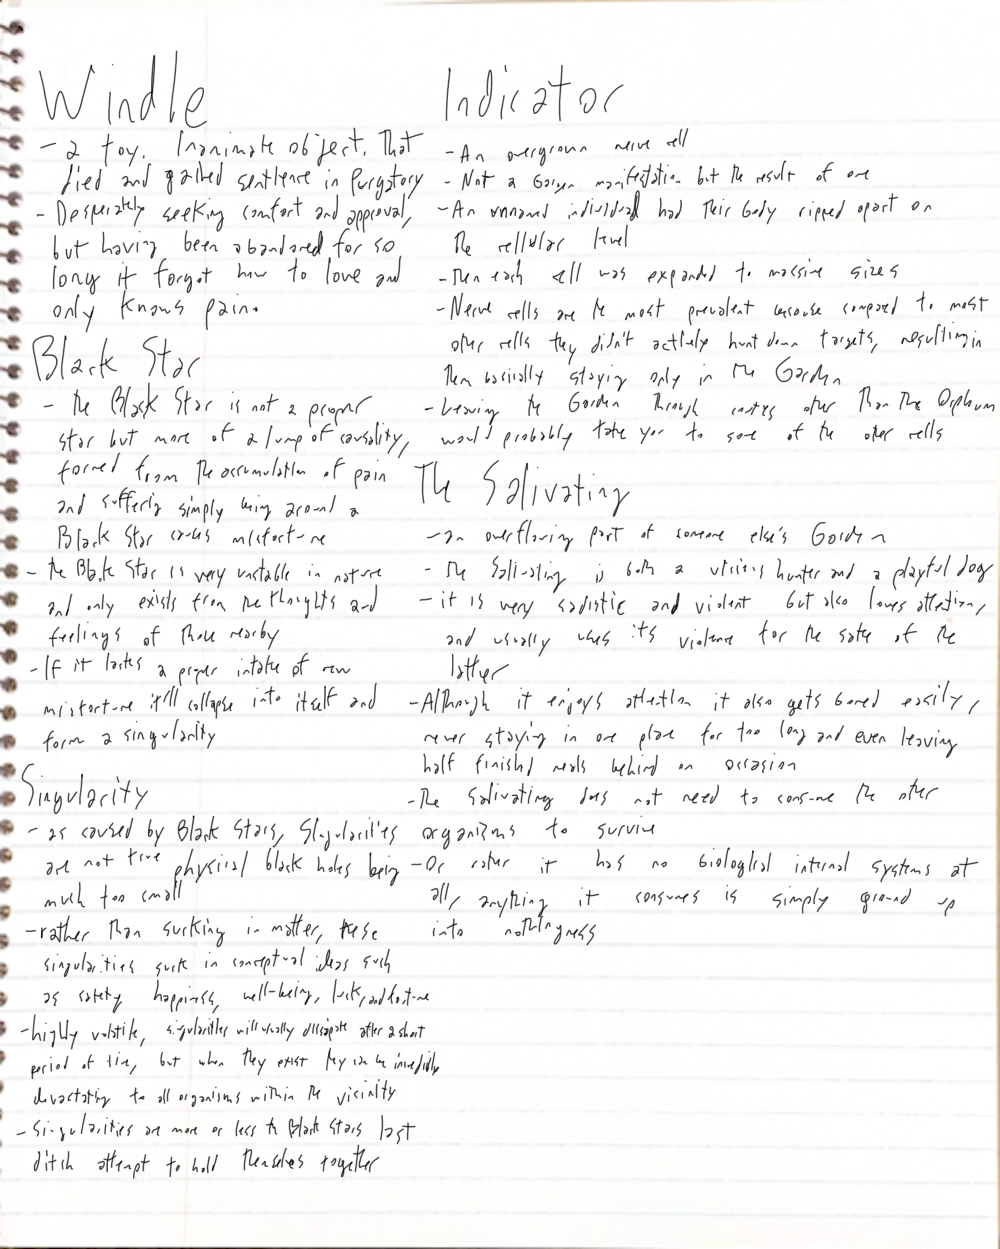 Windle
- a toy. Inanimate object. That
died and gained sentience in Purgatory
- Desperately seeking comfort and approval,
but having been abandoned for so
long it forgot how to love and
only knows pain.
Black Star
- the Black Star is not a proper
star but more of a lump of causality,
formed from the accumulation of pain
and suffering simply being around a
Black Star causes misfortune
- the Black Star is very unstable in nature
and only exists from the thoughts and
feelings of those nearby
- If it lacks a proper intake of new
misfortune it'll collapse into itself and
form a singularity
Singularity
- as caused by Black Stars, Singularities
are not true physical black holes being
much too small
- rather than sucking in matter, these
singularities suck in conceptual ideas such
as safety, happiness, well-being, luck, and fortune
- highly volatile, singularities will usually dissipate after a short
period of time, but when they exist they can be incredibly
devastating to all organisms within the vicinity
- Singularities are more or less the Black Stars last
ditch attempt to hold themselves together
Indicator
- An overgrown nerve cell
- Not a Garden manifestation but the result of one
- An unnamed individual had their body ripped apart on
the cellular level
- Then each cell was expanded to massive sizes
- Nerve cells are the most prevalent because compared to most
other cells they didn't actively hunt down targets, resulting in
them basically staying only in the Garden
- Leaving the Garden through routes other than the Orphum
would probably take you to some of the other cells
The Salivating
- an overflowing part of someone else's Garden
- The Salivating is both a vicious hunter and a playful dog
- it is very sadistic and violent but also loves attention,
and usually uses its violence for the sake of the
latter
- Although it enjoys attention it also gets bored easily,
never staying in one place for too long and even leaving
half finished meals behind on occasion
- The Salivating does not need to consume the other
organisms to survive
- Or rather it has no biological internal systems at
all, anything it consumes is simply ground up
into nothingness